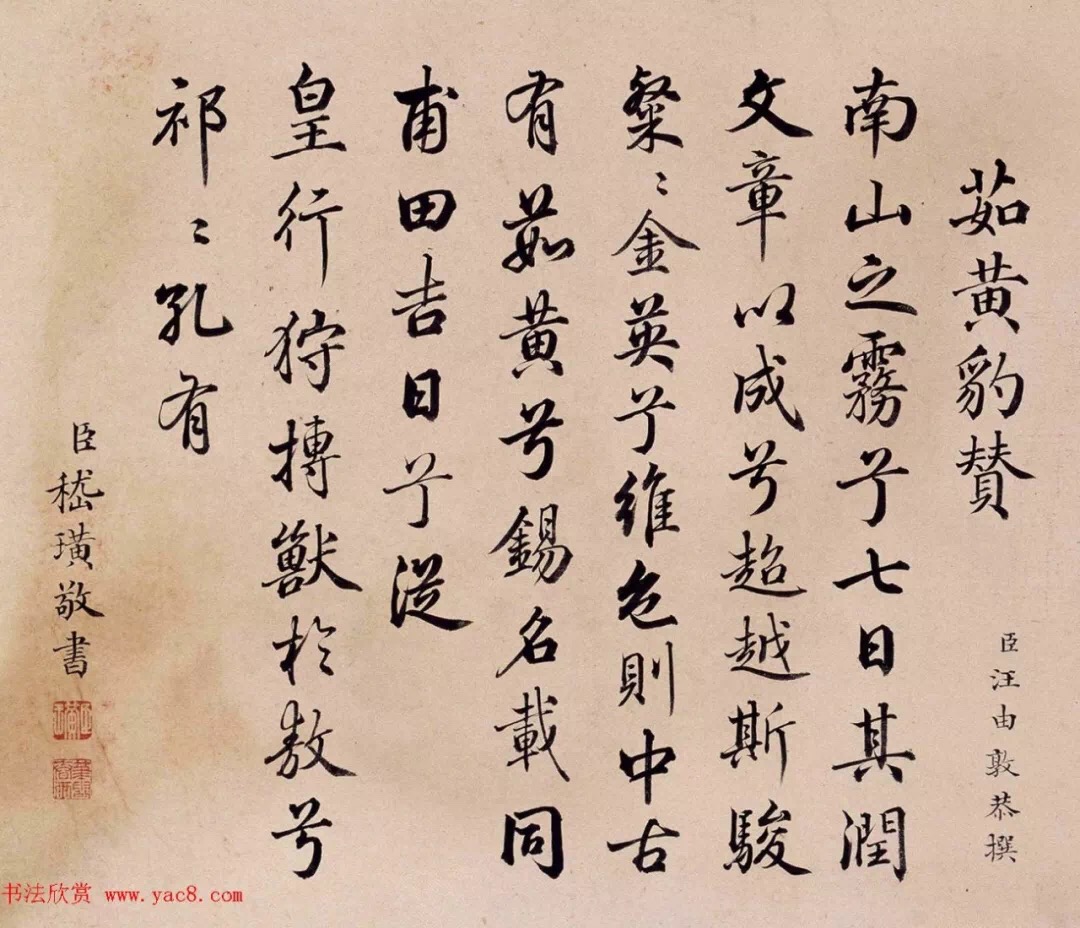 茹黄豹賛
臣汪由敦恭撰
南山之霧兮七日其潤
文章以成兮超越斯駿
粲〻金英兮維色則中古
有茹黄兮錫名載同
甫田吉日兮從
皇行狩搏獸於敖兮
祁〻孔有
臣嵇璜敬書
书法欣赏 www.yac8.com